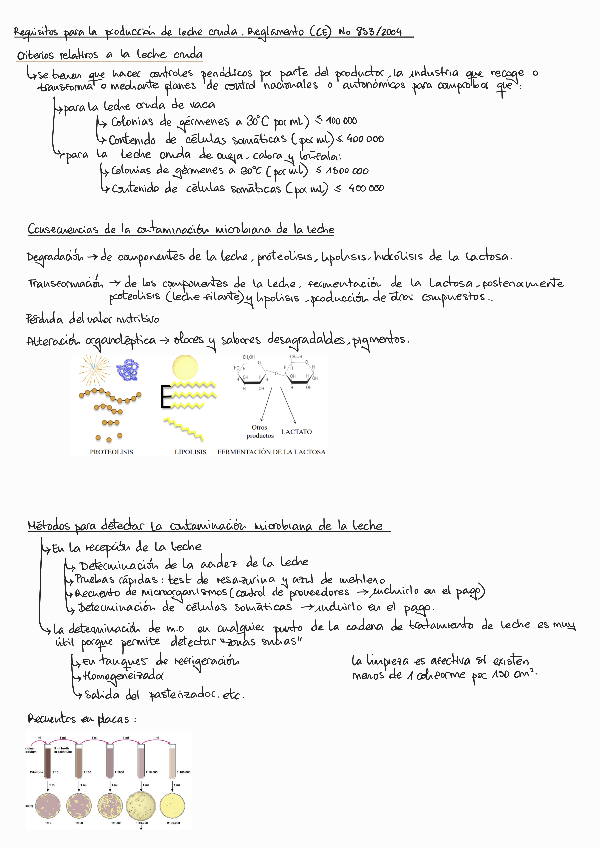 Requisitos para la producción de leche cruda. Reglamento (CE) No 853/2004
Criterios relativos a la leche cruda
↳ se tienen que hacer controles periódicos por parte del productor, la industria que recoge o
transforma o mediante planes de control nacionales o autonómicos para comprobar que:
↳ para la leche cruda de vaca
↳ Colonias de gérmenes a 30°C (por mL) ≤ 100 000
↳ Contenido de células somáticas (por mL) ≤ 400 000
↳ para la leche cruda de oveja, cabra y búfala:
↳ Colonias de gérmenes a 30°C (por mL) ≤ 1500 000
↳ Contenido de células somáticas (por mL) ≤ 400 000
Consecuencias de la contaminación microbiana de la leche
Degradación → de componentes de la leche, proteolisis, lipolisis, hidrólisis de la lactosa.
Transformación → de los componentes de la leche, fermentación de la lactosa, posteriormente
proteolisis (leche filante) y lipolisis, producción de otros compuestos..
Pérdida del valor nutritivo
Alteración organoléptica → olores y sabores desagradables, pigmentos.
CH₂OH CH₂OH
Otros
productos
LACTATO
PROTEOLISIS LIPOLISIS FERMENTACIÓN DE LA LACTOSA
Métodos para detectar la contaminación microbiana de la leche
↳ En la recepción de la leche
↳ Determinación de la acidez de la leche
↳ Pruebas rápidas: test de resazurina y azul de metileno
↳ Recuento de microorganismos (control de proveedores → incluirlo en el pago)
↳ Determinación de células somáticas → incluirlo en el pago.
↳ La determinación de m.o en cualquier punto de la cadena de tratamiento de leche es muy
útil porque permite detectar "zonas sucias"
↳ En tanques de refrigeración
↳ Homogeneizador
↳ Salida del pasterizador, etc.
La limpieza es efectiva si existen
menos de 1 coliforme por 100 cm².
Recuentos en placas: